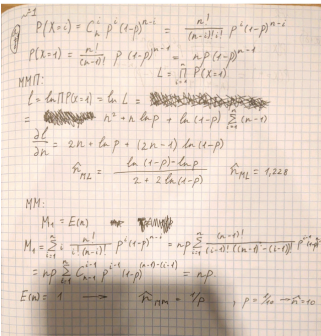 №1
P(X=i) = C_n^i p^i (1-p)^{n-i} = \frac{n!}{(n-i)! i!} p^i (1-p)^{n-i}
P(X=1) = \frac{n!}{(n-1)!} p (1-p)^{n-1} = np(1-p)^{n-1}
L = \prod_{i=1}^{n} P(X=1)
ММП:
l = ln ΠP(X=1) = ln L =
= n² + n ln p + ln(1-p) \sum_{i=1}^{n} (n-1)
\frac{∂l}{∂n} = 2n + ln p + (2n-1) ln(1-p)
\hat{n}_{ML} = \frac{ln(1-p) - ln p}{2 + 2 ln(1-p)} \hat{n}_{ML} = 1,228
ММ:
M₁ = E(n)
M₁ = \sum_{i=1}^{n} i \frac{n!}{i!(n-i)!} p^i (1-p)^{n-i} = np \sum_{i=1}^{n} \frac{(n-1)!}{(i-1)! ((n-1)-(i-1))!}
= np \sum_{i=1}^{n} C_{n-1}^{i-1} p^{i-1} (1-p)^{(n-1)-(i-1)} = np.
E(n) = 1 → \hat{n}_{MM} = 1/p , p = 1/10 → \hat{n} = 10